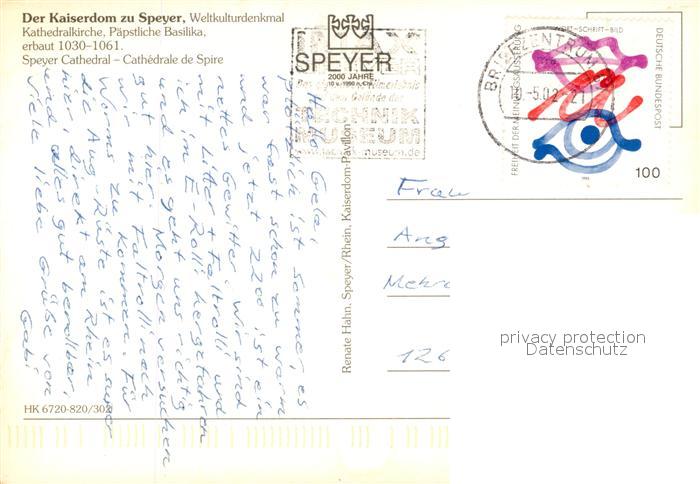 Der Kaiserdom zu Speyer, Weltkulturdenkmal
Kathedralkirche, Päpstliche Basilika,
erbaut 1030–1061.
Speyer Cathedral – Cathédrale de Spire
SPEYER
2000 JAHRE
TECHNIK
MUSEUM
BRIEFZENTRUM
10.-5.02-21
FREIHEIT DER MEINUNGSÄUSSERUNG
WORT-SCHRIFT-BILD
DEUTSCHE BUNDESPOST
100
Hallo Gela!
Plötzlich ist Sommer, es
war fast schon zu warm
und jetzt 22°° ist ein
nettes Gewitter. Wir sind
mit Liter + Faltrolli und
ich im E-Rolli hergefahren
und es geht uns richtig
gut hier. Morgen versuchen
wir mit Faltrolli nach
Worms zu kommen. Für
die Aug-Rüste ist es super
hier, direkt am Rhein
und alles gut berollbar,
viele liebe Grüße von
Gabi
Renate Hahn, Speyer/Rhein, Kaiserdom-Pavillon
Frau
Ang
Mehr
126
privacy protection
Datenschutz
HK 6720-820/302